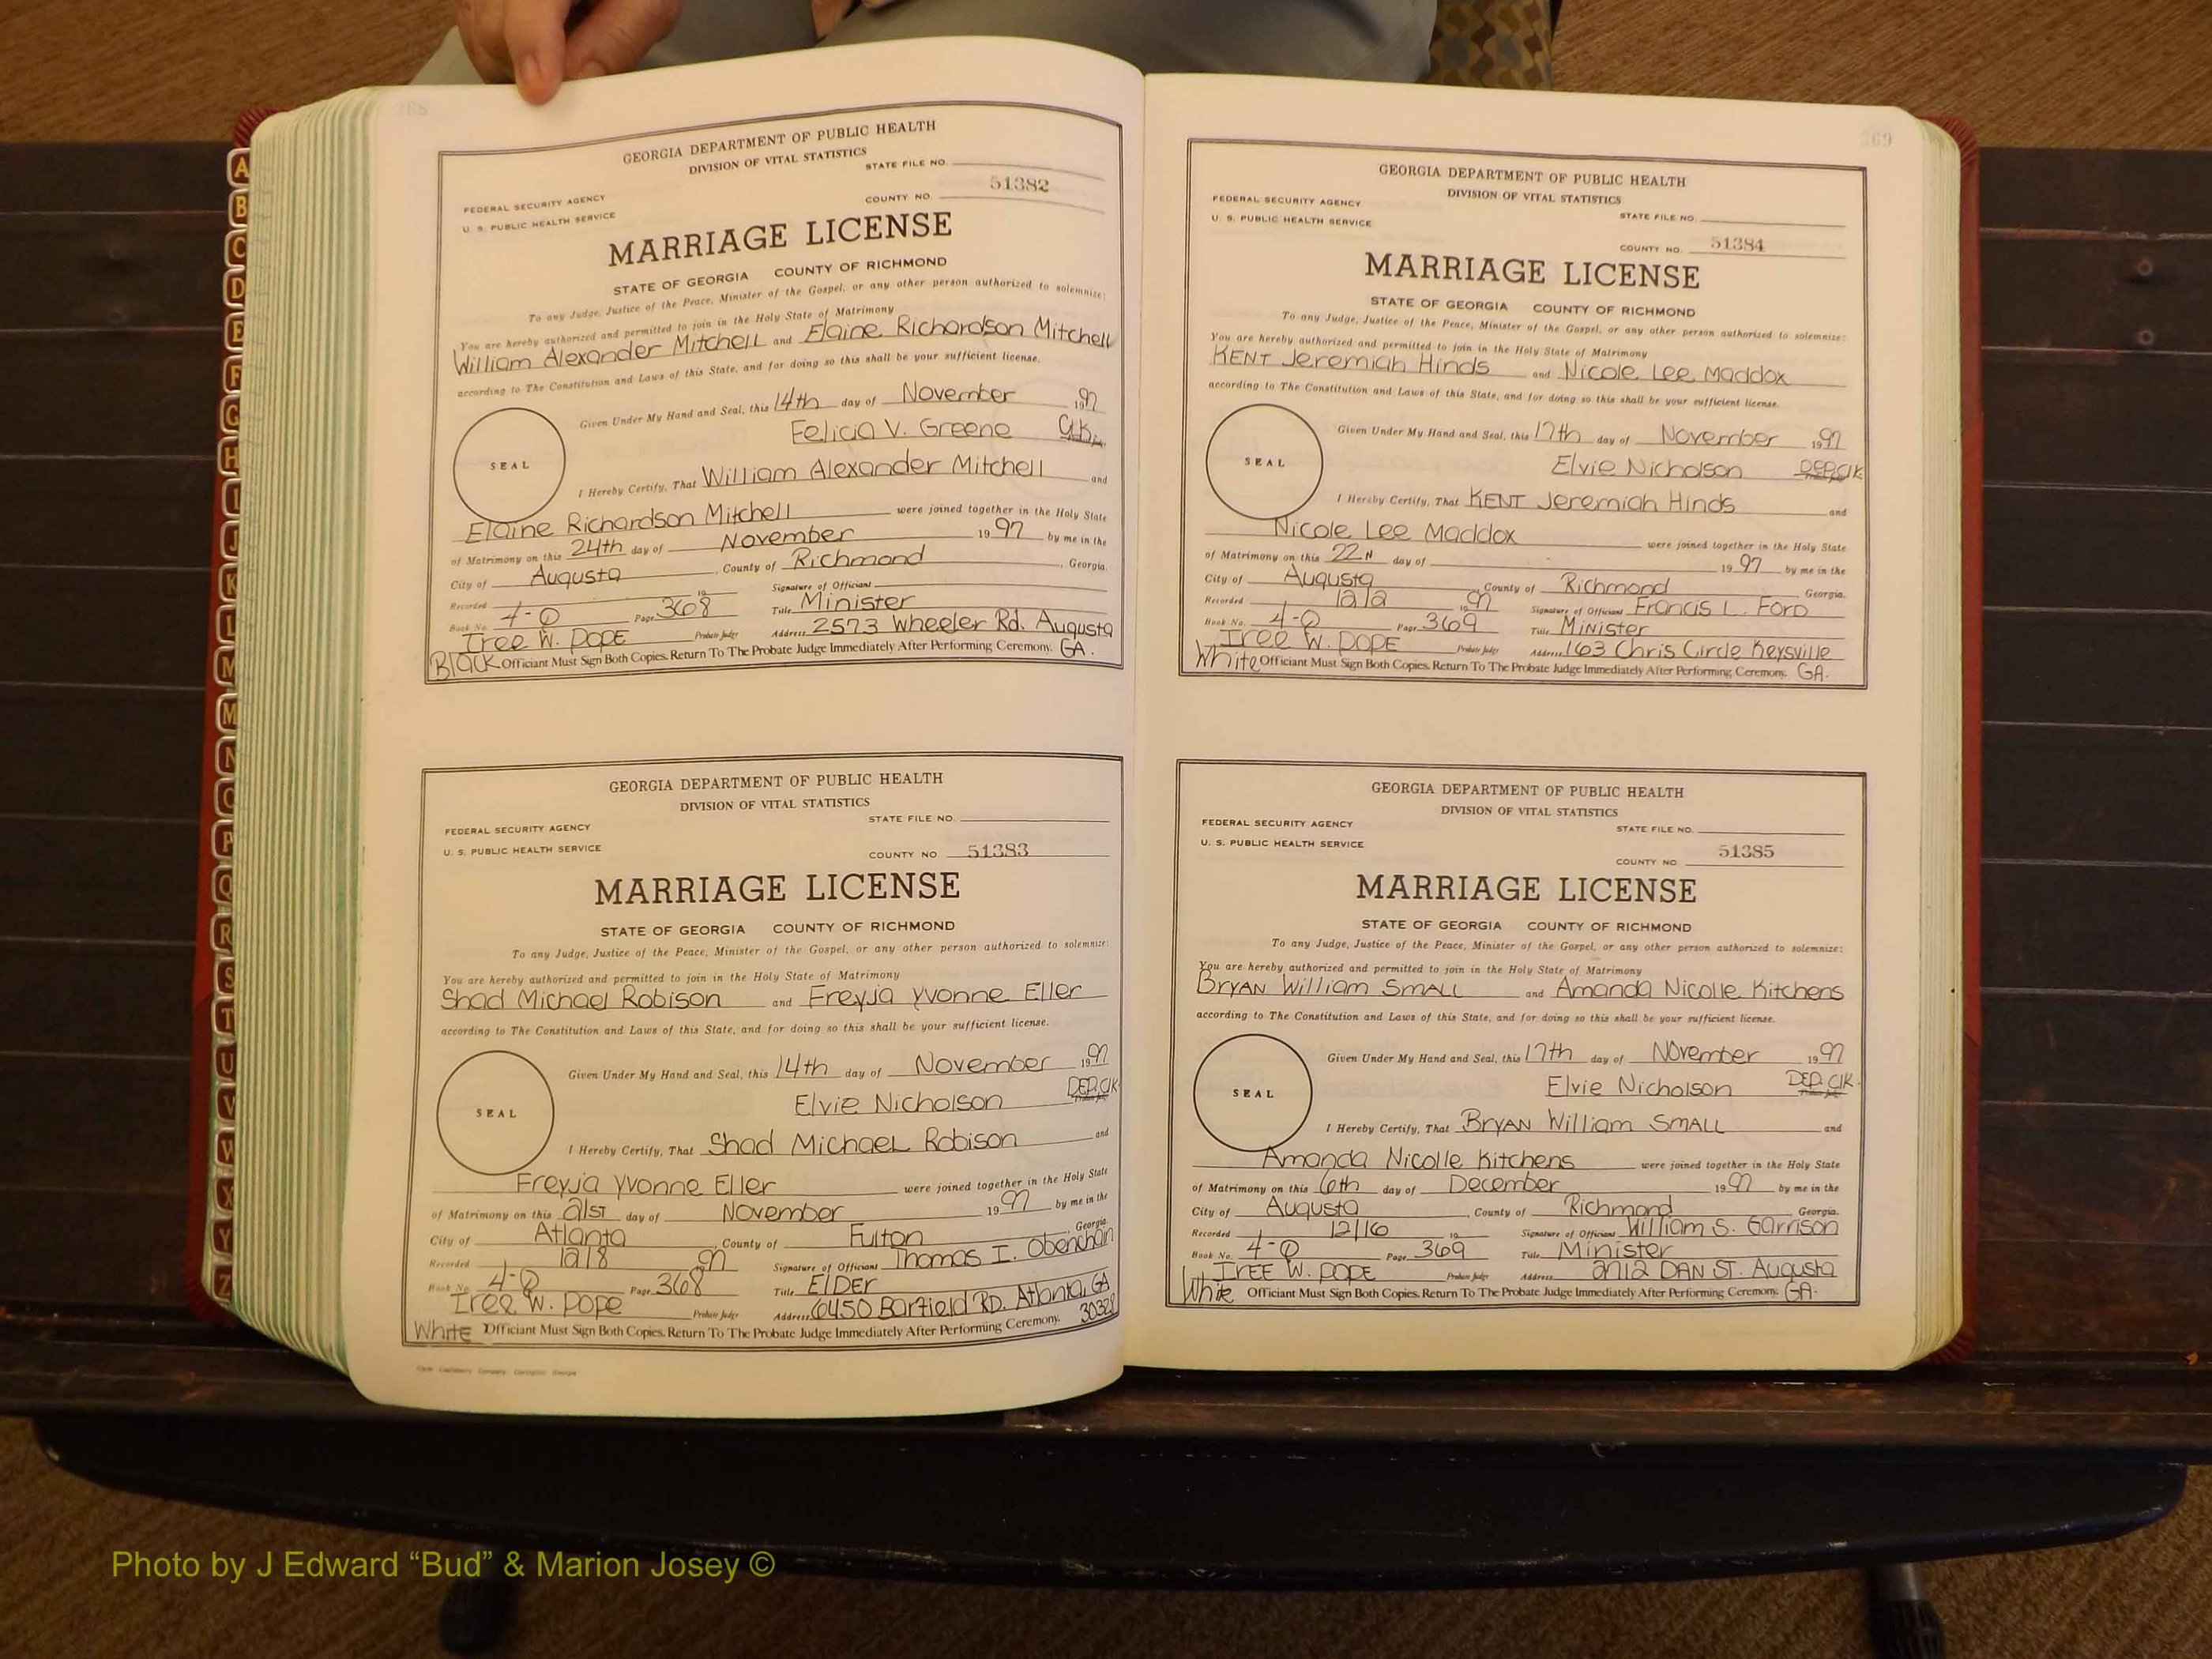 368
GEORGIA DEPARTMENT OF PUBLIC HEALTH
DIVISION OF VITAL STATISTICS
STATE FILE NO.
FEDERAL SECURITY AGENCY
COUNTY NO. 51382
U. S. PUBLIC HEALTH SERVICE
MARRIAGE LICENSE
STATE OF GEORGIA COUNTY OF RICHMOND
To any Judge, Justice of the Peace, Minister of the Gospel, or any other person authorized to solemnize:
You are hereby authorized and permitted to join in the Holy State of Matrimony
William Alexander Mitchell and Elaine Richardson Mitchell
according to The Constitution and Laws of this State, and for doing so this shall be your sufficient license.
Given Under My Hand and Seal, this 14th day of November 1997
Felicia V. Greene Clk.
SEAL
I Hereby Certify, That William Alexander Mitchell and
Elaine Richardson Mitchell were joined together in the Holy State
of Matrimony on this 24th day of November 1997 by me in the
City of Augusta, County of Richmond, Georgia.
Recorded 19 Signature of Officiant
Book No. 4-Q Page 368 Title Minister
Iree W. Pope Probate Judge Address 2573 Wheeler Rd. Augusta
Black Officiant Must Sign Both Copies. Return To The Probate Judge Immediately After Performing Ceremony. GA.
GEORGIA DEPARTMENT OF PUBLIC HEALTH
DIVISION OF VITAL STATISTICS
STATE FILE NO.
FEDERAL SECURITY AGENCY
U. S. PUBLIC HEALTH SERVICE
COUNTY NO 51383
MARRIAGE LICENSE
STATE OF GEORGIA COUNTY OF RICHMOND
To any Judge, Justice of the Peace, Minister of the Gospel, or any other person authorized to solemnize:
You are hereby authorized and permitted to join in the Holy State of Matrimony
Shad Michael Robison and Freyja Yvonne Eller
according to The Constitution and Laws of this State, and for doing so this shall be your sufficient license.
Given Under My Hand and Seal, this 14th day of November 1997
Elvie Nicholson DEP. Clk
SEAL
I Hereby Certify, That Shad Michael Robison and
Freyja Yvonne Eller were joined together in the Holy State
of Matrimony on this 21ST day of November 1997 by me in the
City of Atlanta, County of Fulton, Georgia.
Recorded 12/8 1997 Signature of Officiant Thomas I. Obenchain
Book No. 4-Q Page 368 Title ElDEr
Iree W. Pope Probate Judge Address 6450 Barfield RD. Atlanta, GA 30328
White Officiant Must Sign Both Copies. Return To The Probate Judge Immediately After Performing Ceremony.
369
GEORGIA DEPARTMENT OF PUBLIC HEALTH
DIVISION OF VITAL STATISTICS
FEDERAL SECURITY AGENCY
STATE FILE NO.
U. S. PUBLIC HEALTH SERVICE
COUNTY NO. 51384
MARRIAGE LICENSE
STATE OF GEORGIA COUNTY OF RICHMOND
To any Judge, Justice of the Peace, Minister of the Gospel, or any other person authorized to solemnize:
You are hereby authorized and permitted to join in the Holy State of Matrimony
KENT Jeremiah Hinds and Nicole Lee Maddox
according to The Constitution and Laws of this State, and for doing so this shall be your sufficient license.
Given Under My Hand and Seal, this 17th day of November 1997
Elvie Nicholson DEP. Clk
SEAL
I Hereby Certify, That KENT Jeremiah Hinds and
Nicole Lee Maddox were joined together in the Holy State
of Matrimony on this 22 N day of 1997 by me in the
City of Augusta, County of Richmond, Georgia.
Recorded 12/2 1997 Signature of Officiant Francis L. Ford
Book No. 4-Q Page 369 Title Minister
Iree W. POPE Probate Judge Address 163 Chris Circle Keysville
White Officiant Must Sign Both Copies. Return To The Probate Judge Immediately After Performing Ceremony. GA.
GEORGIA DEPARTMENT OF PUBLIC HEALTH
DIVISION OF VITAL STATISTICS
FEDERAL SECURITY AGENCY
STATE FILE NO.
U. S. PUBLIC HEALTH SERVICE
COUNTY NO 51385
MARRIAGE LICENSE
STATE OF GEORGIA COUNTY OF RICHMOND
To any Judge, Justice of the Peace, Minister of the Gospel, or any other person authorized to solemnize:
You are hereby authorized and permitted to join in the Holy State of Matrimony
Bryan William SMALL and Amanda Nicolle Kitchens
according to The Constitution and Laws of this State, and for doing so this shall be your sufficient license.
Given Under My Hand and Seal, this 17th day of November 1997
Elvie Nicholson DEP. Clk.
SEAL
I Hereby Certify, That Bryan William SMALL and
Amanda Nicolle Kitchens were joined together in the Holy State
of Matrimony on this 6th day of December 1997 by me in the
City of Augusta, County of Richmond, Georgia.
Recorded 12/16 19 Signature of Officiant William S. Garrison
Book No. 4-Q Page 369 Title Minister
IrEE W. POPE Probate Judge Address 2712 DAN ST. Augusta
White Officiant Must Sign Both Copies. Return To The Probate Judge Immediately After Performing Ceremony. GA.
A
B
C
D
E
F
G
H
I
J
K
L
M
M
N
O
P
Q
R
S
T
U
V
W
X
Y
Z
Photo by J Edward “Bud” & Marion Josey ©